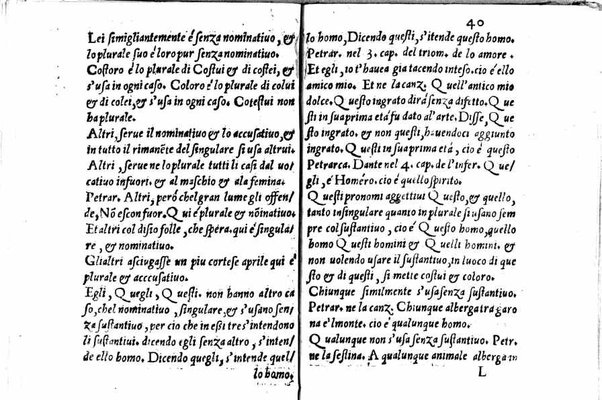 Lei simigliantemente é senza nominatiuo, &
lo plurale suo é loro pur senza nominatiuo.
Costoro é lo plurale di Costui & di costei, &
s'usa in ogni caso. Coloro é lo plural di colui
& di colei, & s'usa in ogni caso. Cotestui non
ha plurale.
Altri, serue il nominatiuo & lo accusatiuo, &
in tutto il rimanẽte del singulare si usa altrui.
Altri, serue ne lo plurale tutti li casi dal uo-
catiuo infuori. & al maschio & ala femina.
Petrar. Altri, però che'l gran lume gli offen-
de, Nõ esconfuor. Qui é plurale & nõinatiuo.
Et altri col disio folle, che spera. qui é singula-
re, & nominatiuo.
Gli altri asciugasse un piu cortese aprile qui é
plurale & acccusatiuo.
Egli, Quegli, Questi. non hanno altro ca
so, che'l nominatiuo, singulare, & s'usano sen-
za sustantiuo, per cio che in eßi tre s'intendono
li sustantiui. dicendo egli senza altro, s'inten-
de ello homo. Dicendo quegli, s'intende quel-
lo homo.
40
lo homo, Dicendo questi, s'itende questo homo.
Petrar. nel 3. cap. del triom. de lo amore.
Et egli, io t'hauea gia tacendo inteso. cio é ello
amico mio. Et ne la canz. Quell'antico mio
dolce. Questo ingrato dirà senza difetto. Que
sti in sua prima età fu dato al'arte. Disse, Que
sto ingrato. & non questi, hauendoci aggiunto
ingrato. Questi in sua prima età, cio é questo
Petrarca. Dante nel 4. cap. de l'infer. Que-
gli, é Homéro. cio é quello spirito.
Questi pronomi aggettiui Questo, & quello,
tanto in singulare quanto in plurale si usano sem
pre col sustantiuo, cio é Questo homo, quello
homo Questi homini & Quelli homini. &
non uolendo usare il sustantiuo, in luoco di que
sto & di questi, si mette costui & costoro.
Chiunque similmente s'usa senza sustantiuo.
Petrar. ne la canz. Chiunque alberga tra garo
na e'l monte. cio é qualunque homo.
Qualunque non s'usa senza sustantiuo. Petr.
ne la sestina. A qualunque animale alberga in
L